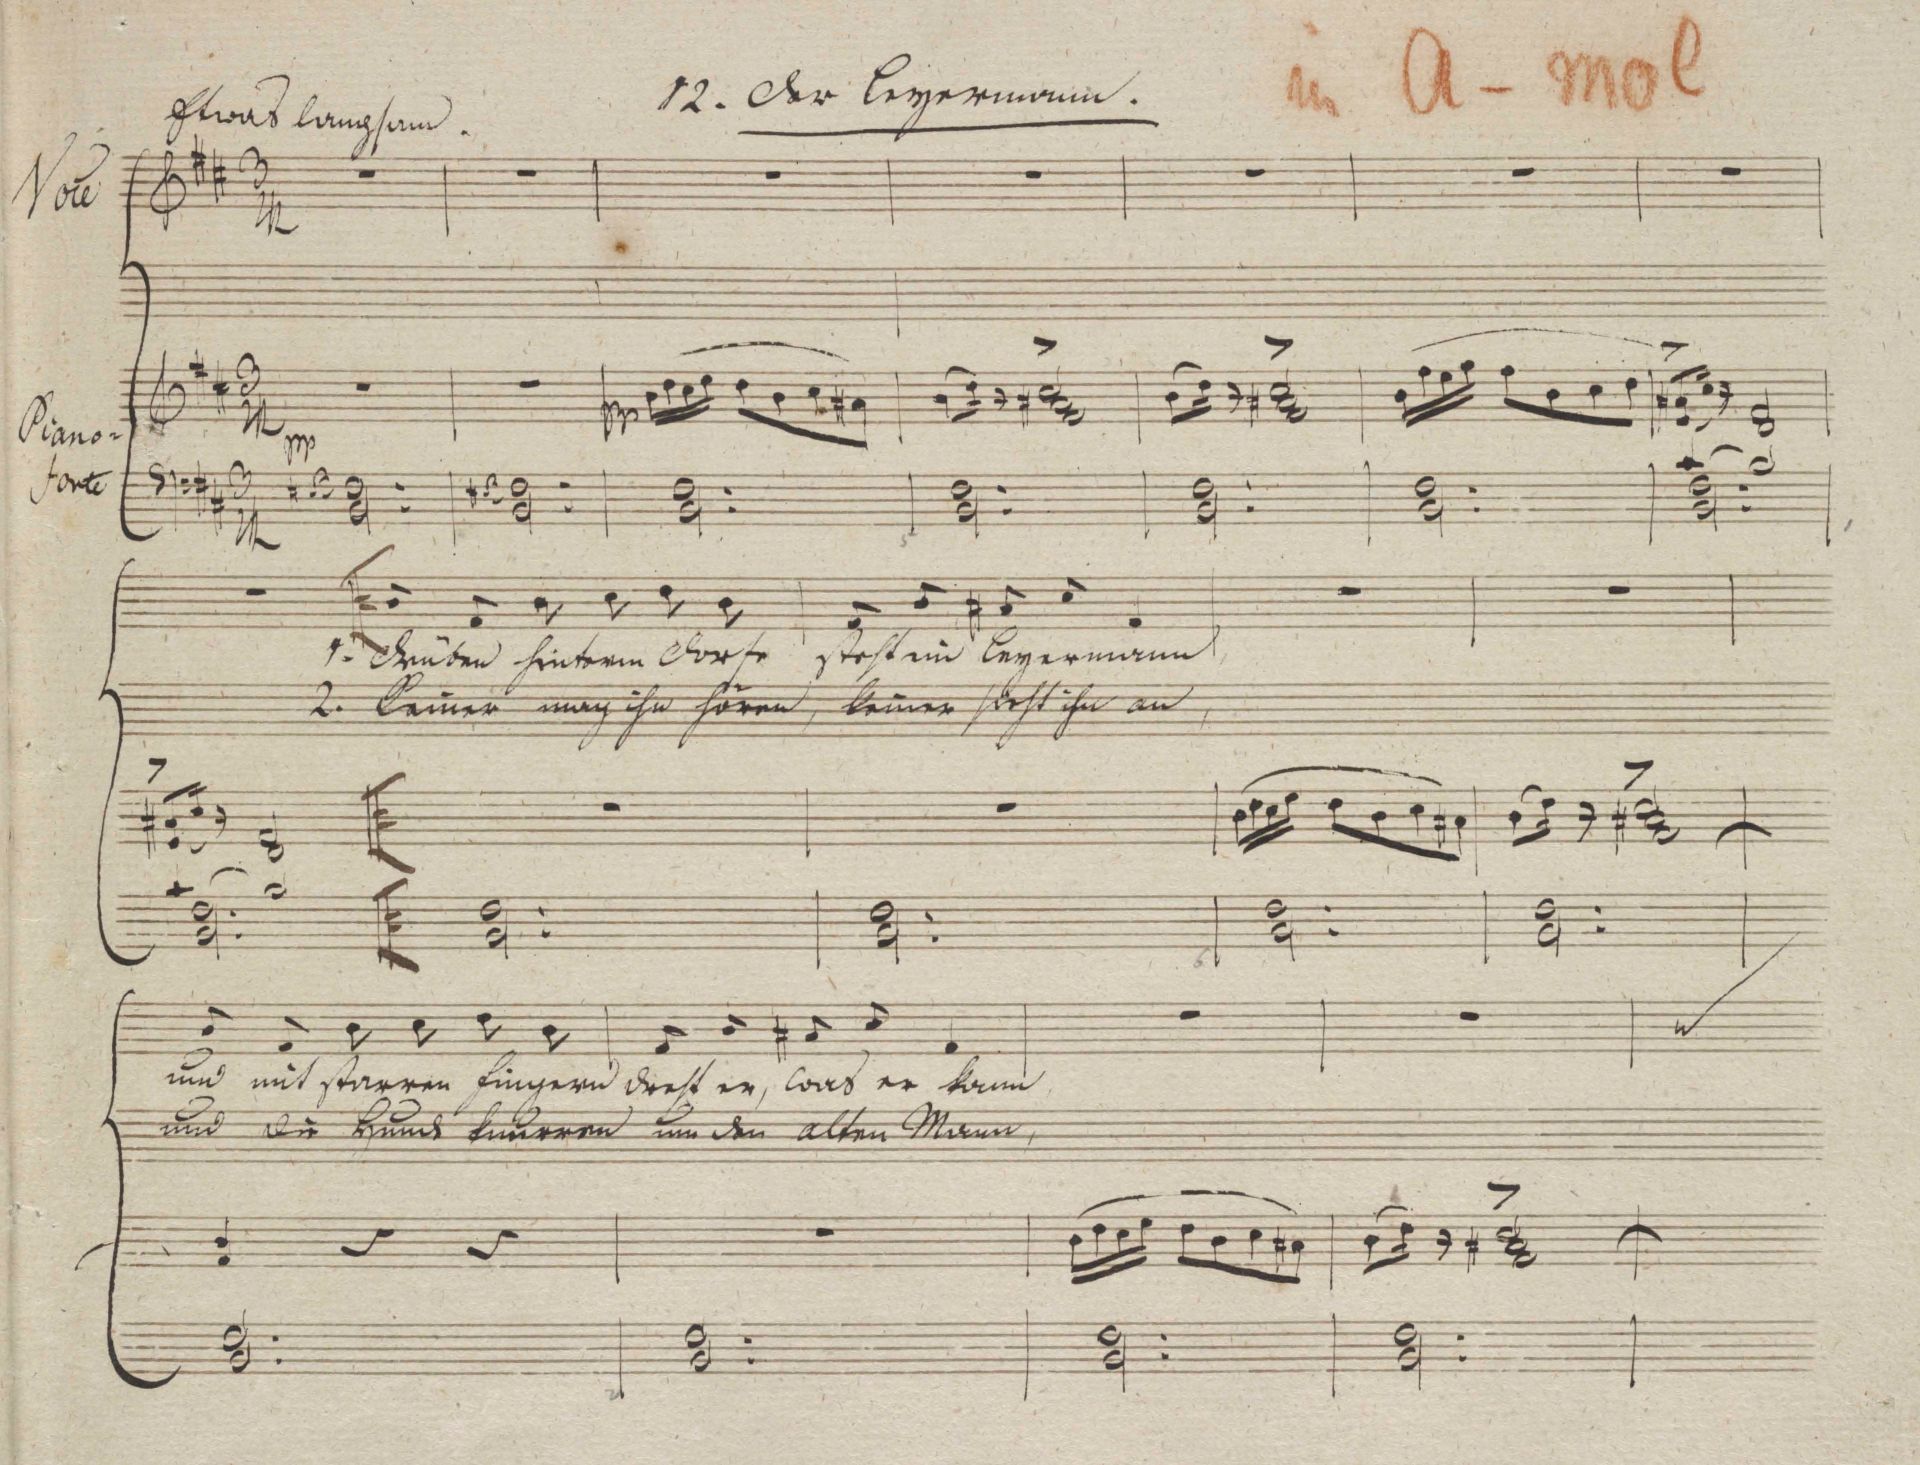 12. Der Leyermann.
in A-mol
Etwas langsam.
Voce
Piano=
forte
pp
pp
1. Drüben hinterm Dorfe steht ein Leyermann,
2. Keiner mag ihn hören, keiner sieht ihn an,
und mit starren Fingern dreht er, was er kann
und die Hunde knurren um den alten Mann,